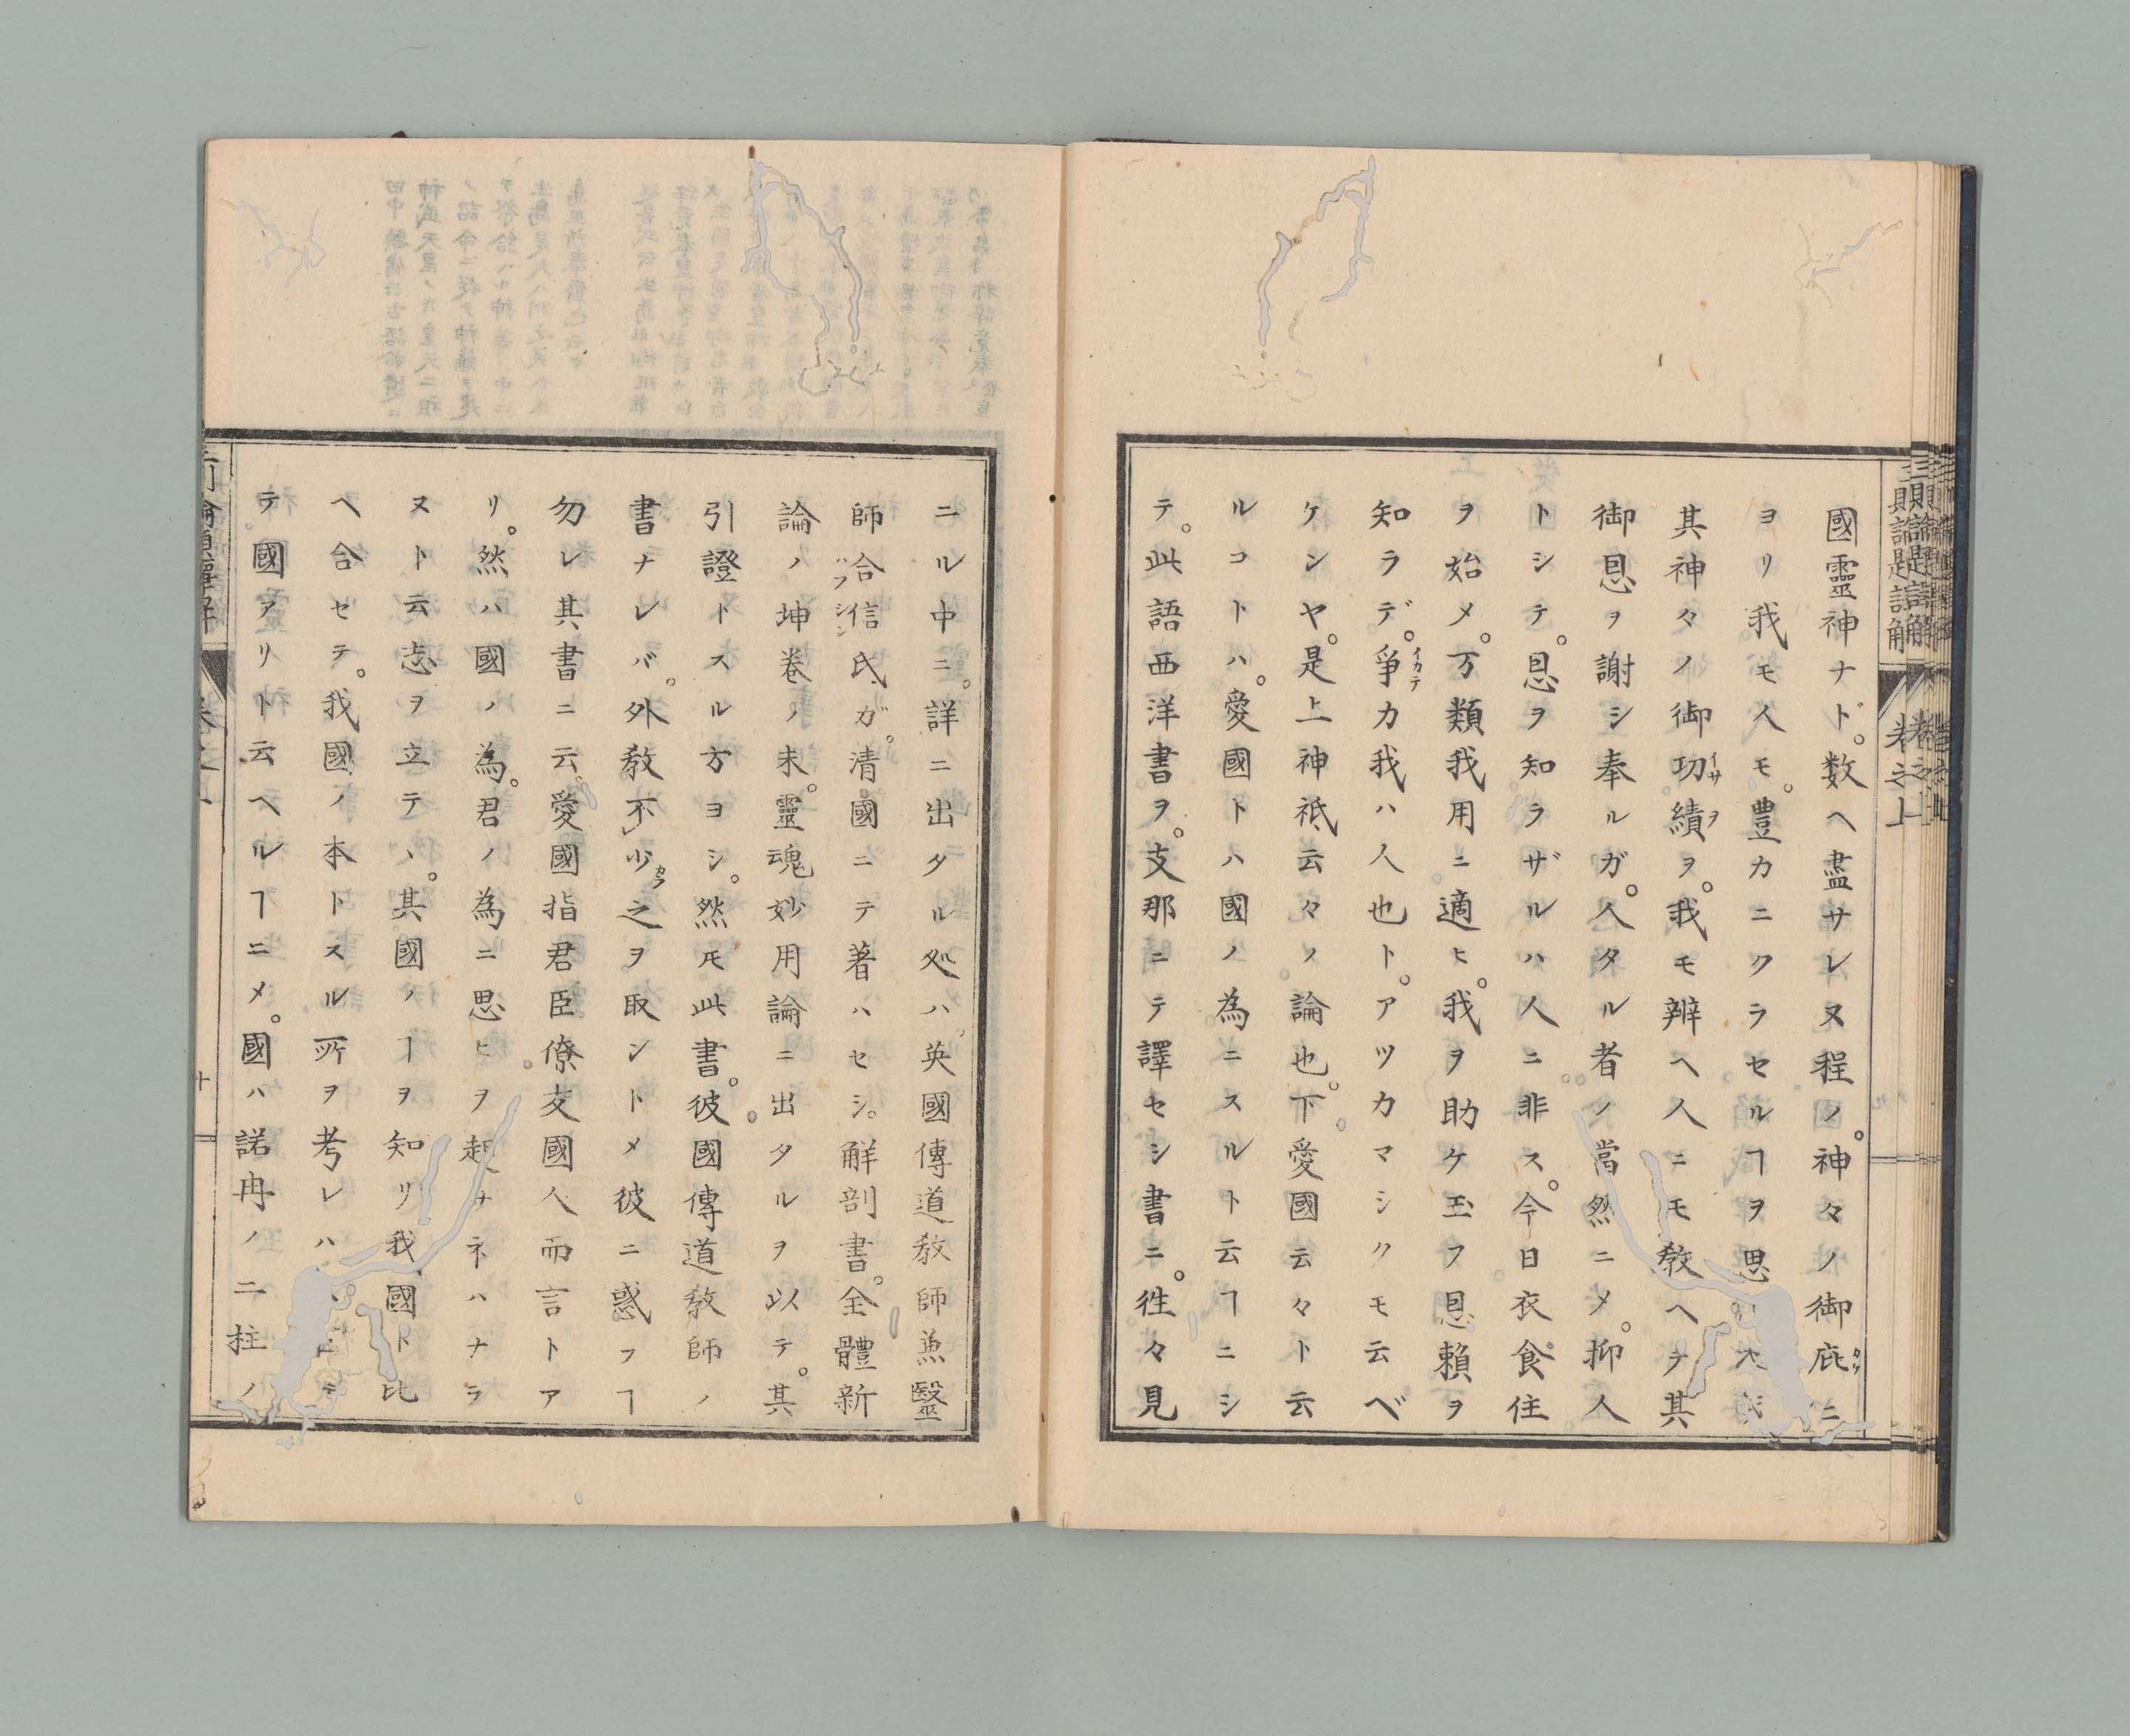 國靈神ナド。数ヘ盡サレヌ程ノ。神々ノ御庇ニ
ヨリ我モ人モ。豊カニクラセルヿヲ思
其神々ノ御功績ヲ。我モ辨ヘ人ニモ教ヘテ其
御恩ヲ謝シ奉ルガ。人タル者ノ當然ニメ。抑人
トシテ。恩ヲ知ラザルハ人ニ非ス。今日衣食住
ヲ始メ。万類我用ニ適ヒ。我ヲ助ケ玉フ恩頼ヲ
知ラデ。爭カ我ハ人也ト。アツカマシクモ云ベ
ケンヤ。是上神祇云々ノ論也。下愛國云々ト云
ルコトハ。愛國トハ國ノ為ニスルト云ヿニシ
テ。此語西洋書ヲ。支那ニテ譯セシ書ニ。徃々見
ニル中ニ。詳ニ出タル処ハ。英國傳道教師兼醫
師合信氏ガ。清國ニテ著ハセシ。解剖書。全體新
論ノ坤巻ノ末。靈魂妙用論ニ出タルヲ以テ。其
引證トスル方ヨシ。然モ此書。彼國傳道教師ノ
書ナレバ。外教不少之ヲ取ントメ彼ニ惑フヿ
勿レ其書ニ云。愛國指君臣僚友國人而言トア
リ。然ハ國ノ為。君ノ為ニ思ヒヲ起サネハナラ
ヌト云志ヲ立テハ。其國ノヿヲ知リ我國ト比
ヘ合セテ。我國ノ本トスル所ヲ考レハ
テ。國アリト云ヘルヿニメ。國ハ諾冉ノ二柱ノ